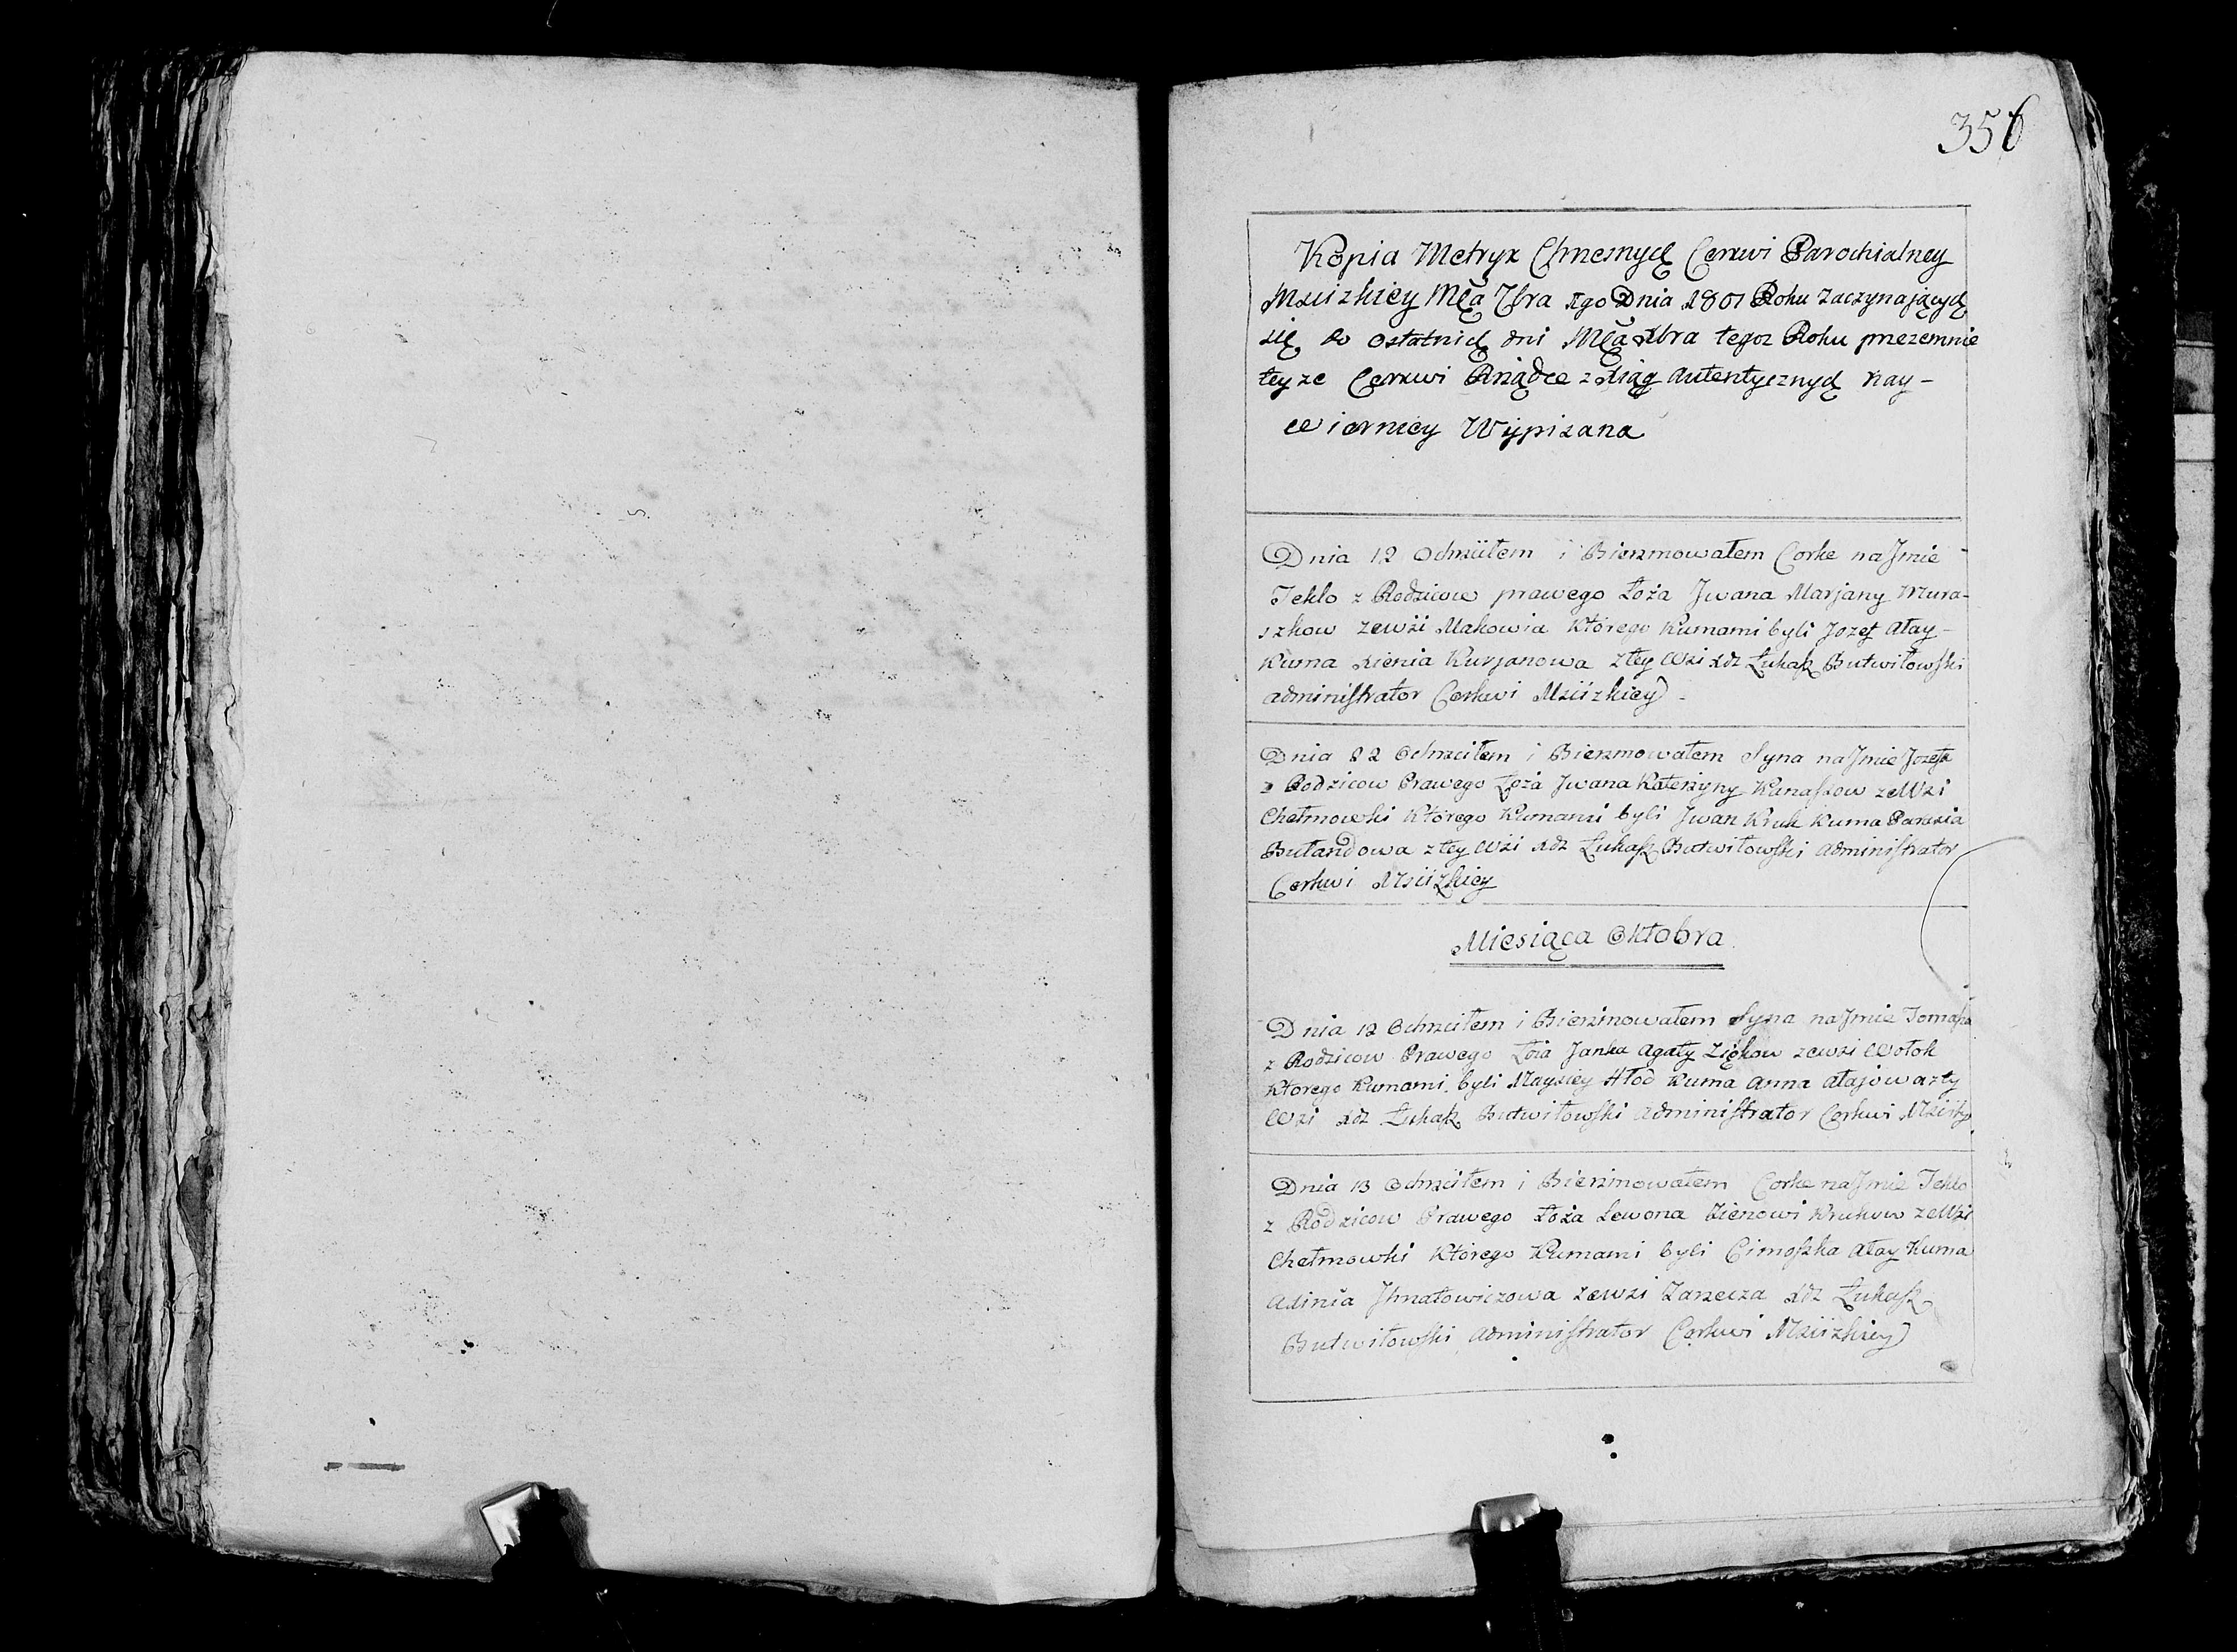 356
Kopia Metryk Chrzesnych Cerkwi Parochialney
Mscizkiey Mca 7bra 1go Dnia 1801 Roku zaczynających
się do ostatnich dni Mca Xbra tegoz Roku przezemnie
teyze Cerkwi Rządce z Xiąg Autentycznych nay-
wierniey Wypisana
Dnia 12 Ochrzciłem i Bierzmowałem Corke na Jmie
Teklo z Rodzicow prawego Łoża Jwana Marjany Mura-
szkow zewsi Makowia Którego Kumami byli Jozef Ałay-
Kuma Xienia Kurjanowa z tey Wsi Xdz Łukasz Butwiłowski
administrator Cerkwi Mscizkiey
Dnia 22 Ochrzciłem i Bierzmowałem Syna na Jmie Jozefa
z Rodzicow Prawego Łoża Jwana Katerzyny Kunaszow ze Wsi
Chełmowki Którego Kumami byli Jwan Kruk Kuma Parasia
Bułandowa z tey Wsi Xdz Łukasz Butwiłowski Administrator
Cerkwi Mscizkiey
Miesiąca Oktobra
Dnia 12 Ochrzciłem i Bierzmowałem Syna na Jmie Tomasza
z Rodzicow Prawego Łoża Janka Agaty Ziękow zewsi Wołok
Ktorego Kumami byli Maysiey Hłod Kuma Anna Ałajowa z ty
Wsi Xdz Łukasz Butwiłowski Administrator Cerkwi
Dnia 13 Ochrzciłem i Bierzmowałem Corke na Jmie Teklo
z Rodzicow Prawego Łoża Lewona Zienowi Krukow ze Wsi
Chełmowki Którego Kumami byli Cimoszka Ałay Kuma
Jhnatowiczowa zewsi Zarzecza Xdz Łukasz
Butwiłowski Administrator Cerkwi Mscizkiey